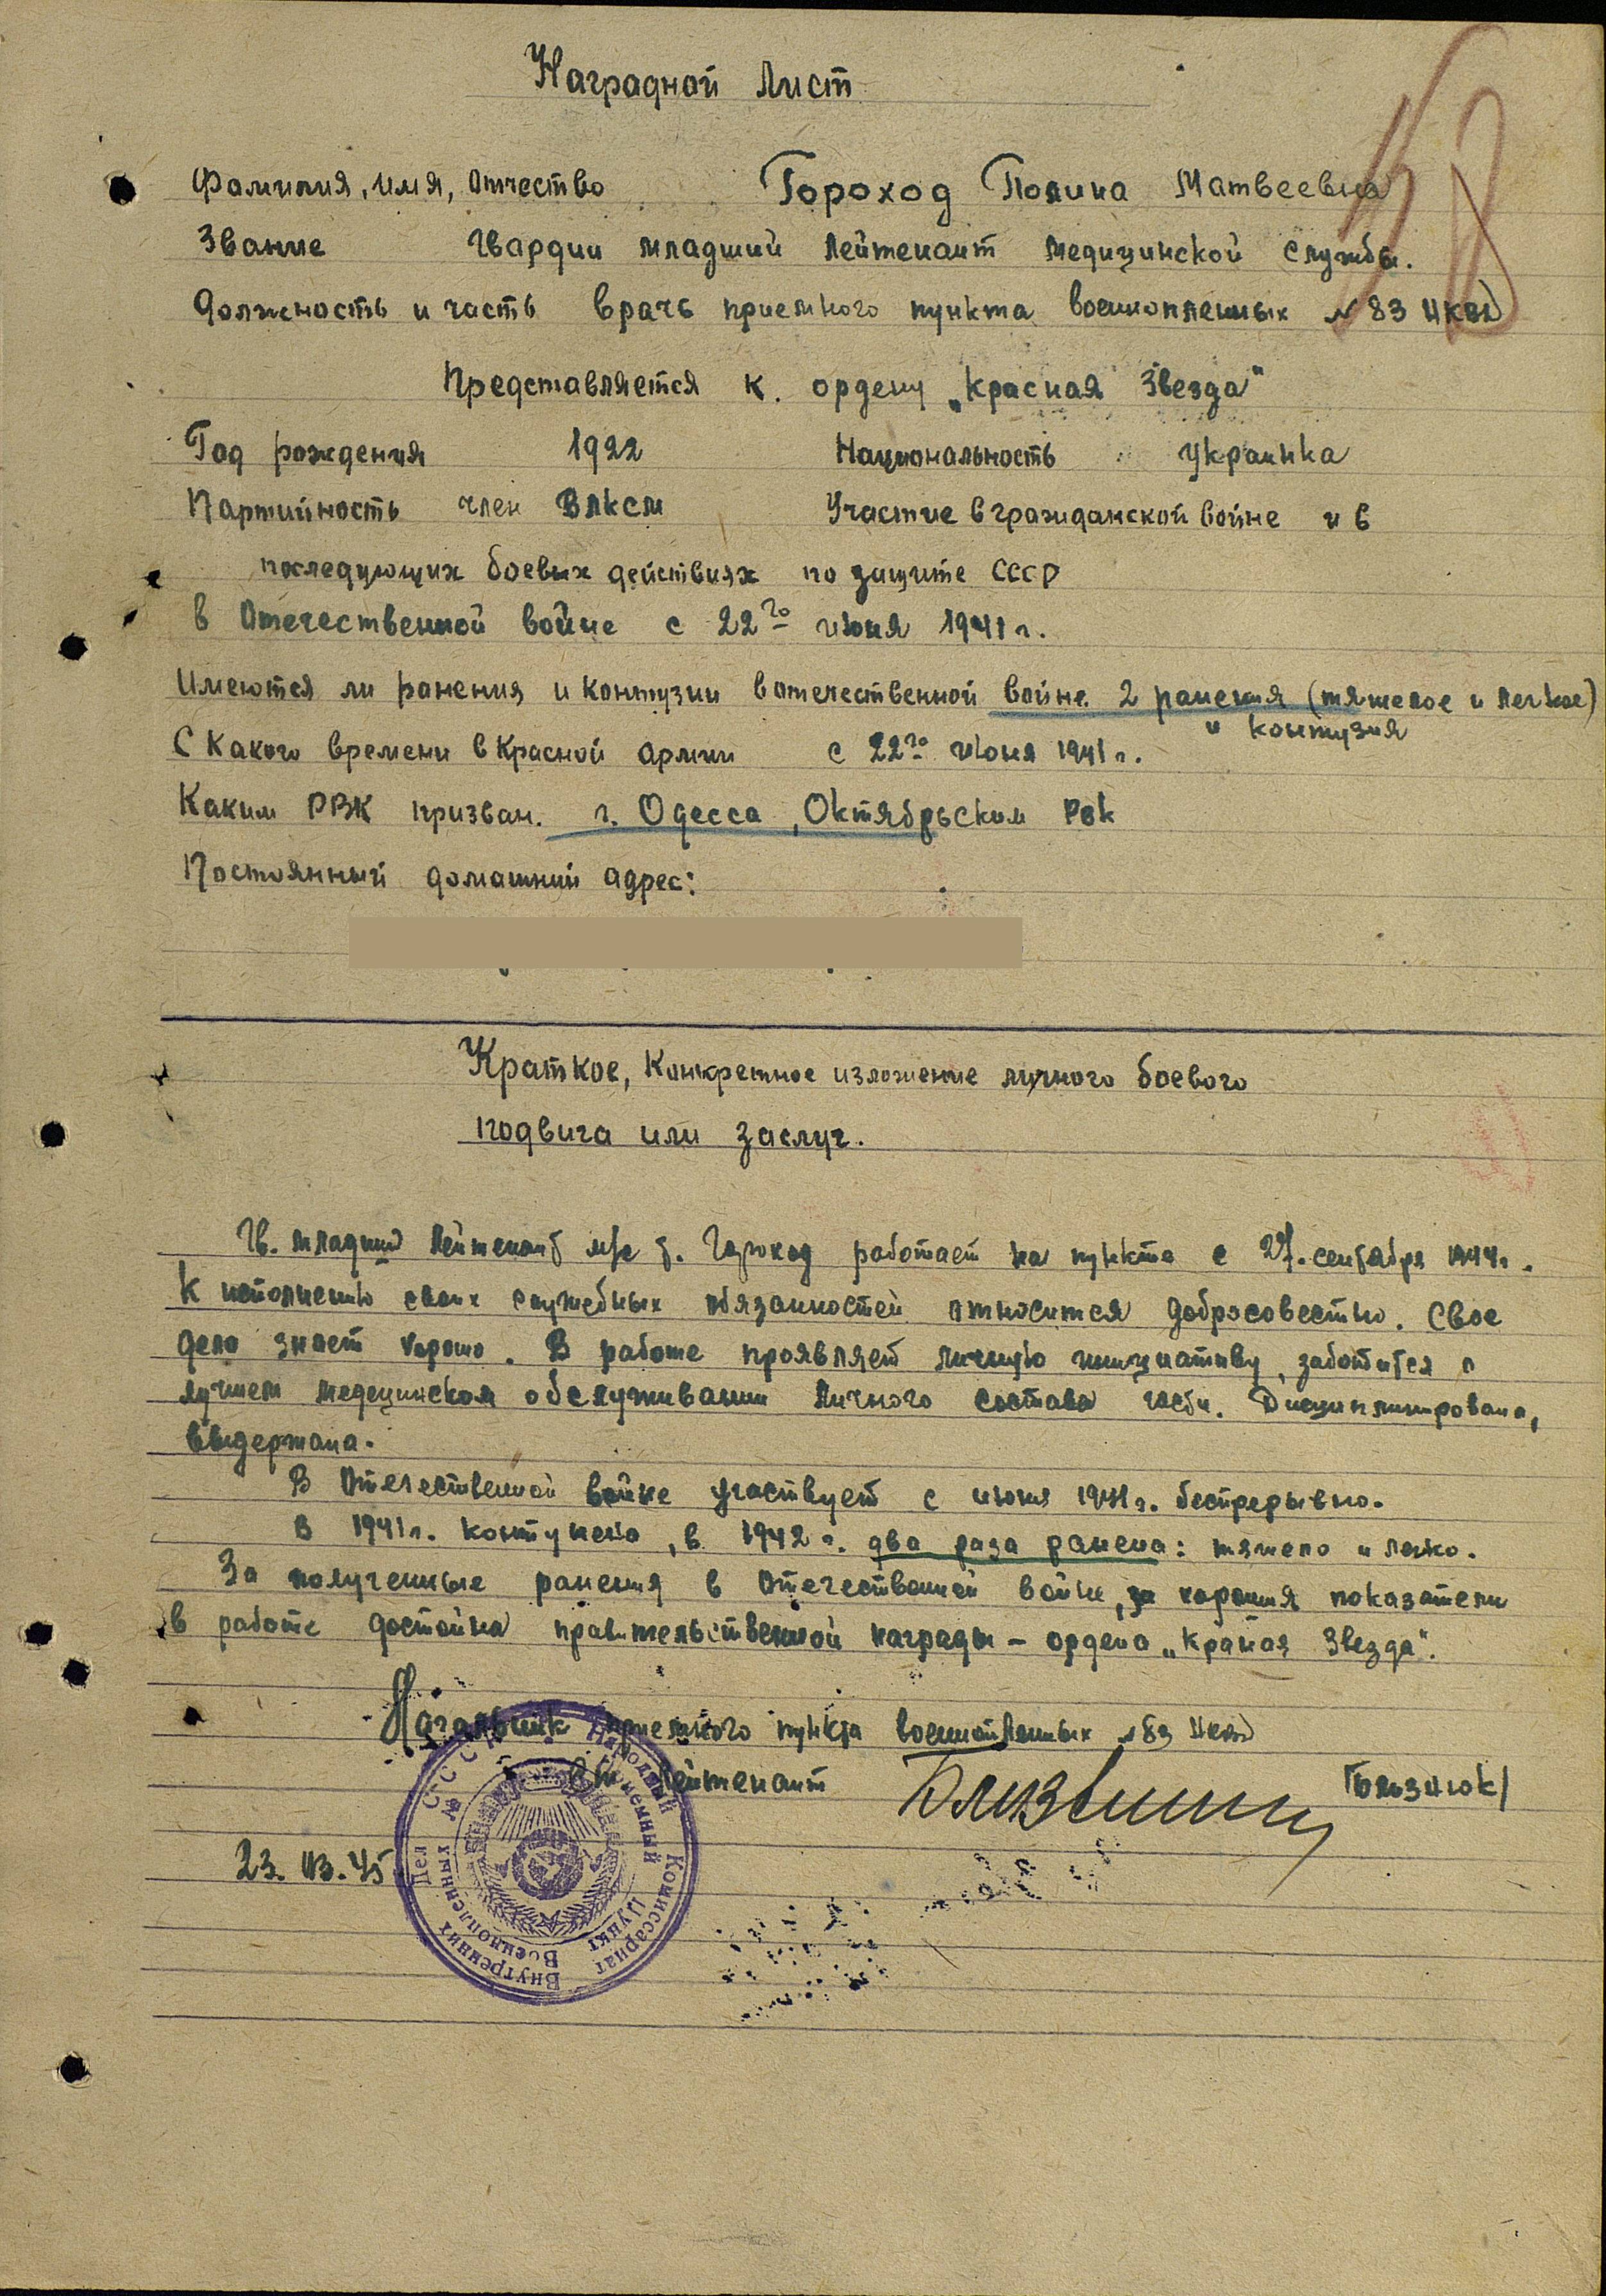 58
Наградной Лист
Фамилия, имя, отчество Гороход Полина Матвеевна
Звание Гвардии младший лейтенант медицинской службы.
Должность и часть врачь приемного пункта военнопленных № 83 НКВД
Представляется к. ордену „Красная Звезда"
Год рождения 1922 Национальность Украинка
Партийность член ВЛКСМ Участие в гражданской войне и в
последующих боевых действиях по защите СССР
в Отечественной войне с 22го июня 1941 г.
Имеются ли ранения и контузии в отечественной войне 2 ранения (тяжелое и легкое)
и контузия
С какого времени в Красной армии с 22го июня 1941 г.
Каким РВК призван. г. Одесса, Октябрьским РВК
Постоянный домашний адрес:
Краткое, Конкретное изложение личного боевого
подвига или заслуг.
Гв. младший лейтенант м/с т. Гороход работает на пункте с 27. сентября 1944 г.
К исполнению своих служебных обязанностей относится добросовестно. Свое
дело знает хорошо. В работе проявляет личную инициативу, заботится о
лучшем медецинском обслуживании личного состава части. Дисциплинирована,
выдержана.
В Отечественной войне участвует с июня 1941 г. беспрерывно.
В 1941 г. контужена, в 1942 г. два раза ранена: тяжело и легко.
За полученные ранения в Отечественной войне, за хорошия показатели
в работе достойна правительственной награды – ордена „Красная Звезда".
Начальник приемного пункта военнопленных № 83 НКВД
Ст. Лейтенант
23. 03. 45
СССР Народный Комиссариат Внутренних Дел
Приемный Пункт Военнопленных №